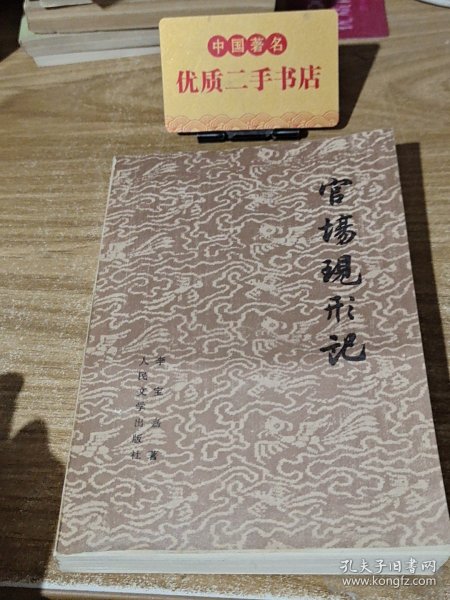 中国著名
优质二手书店
官場現形記
李宝嘉著
人民文学出版社
孔夫子旧书网
www.kongfz.com